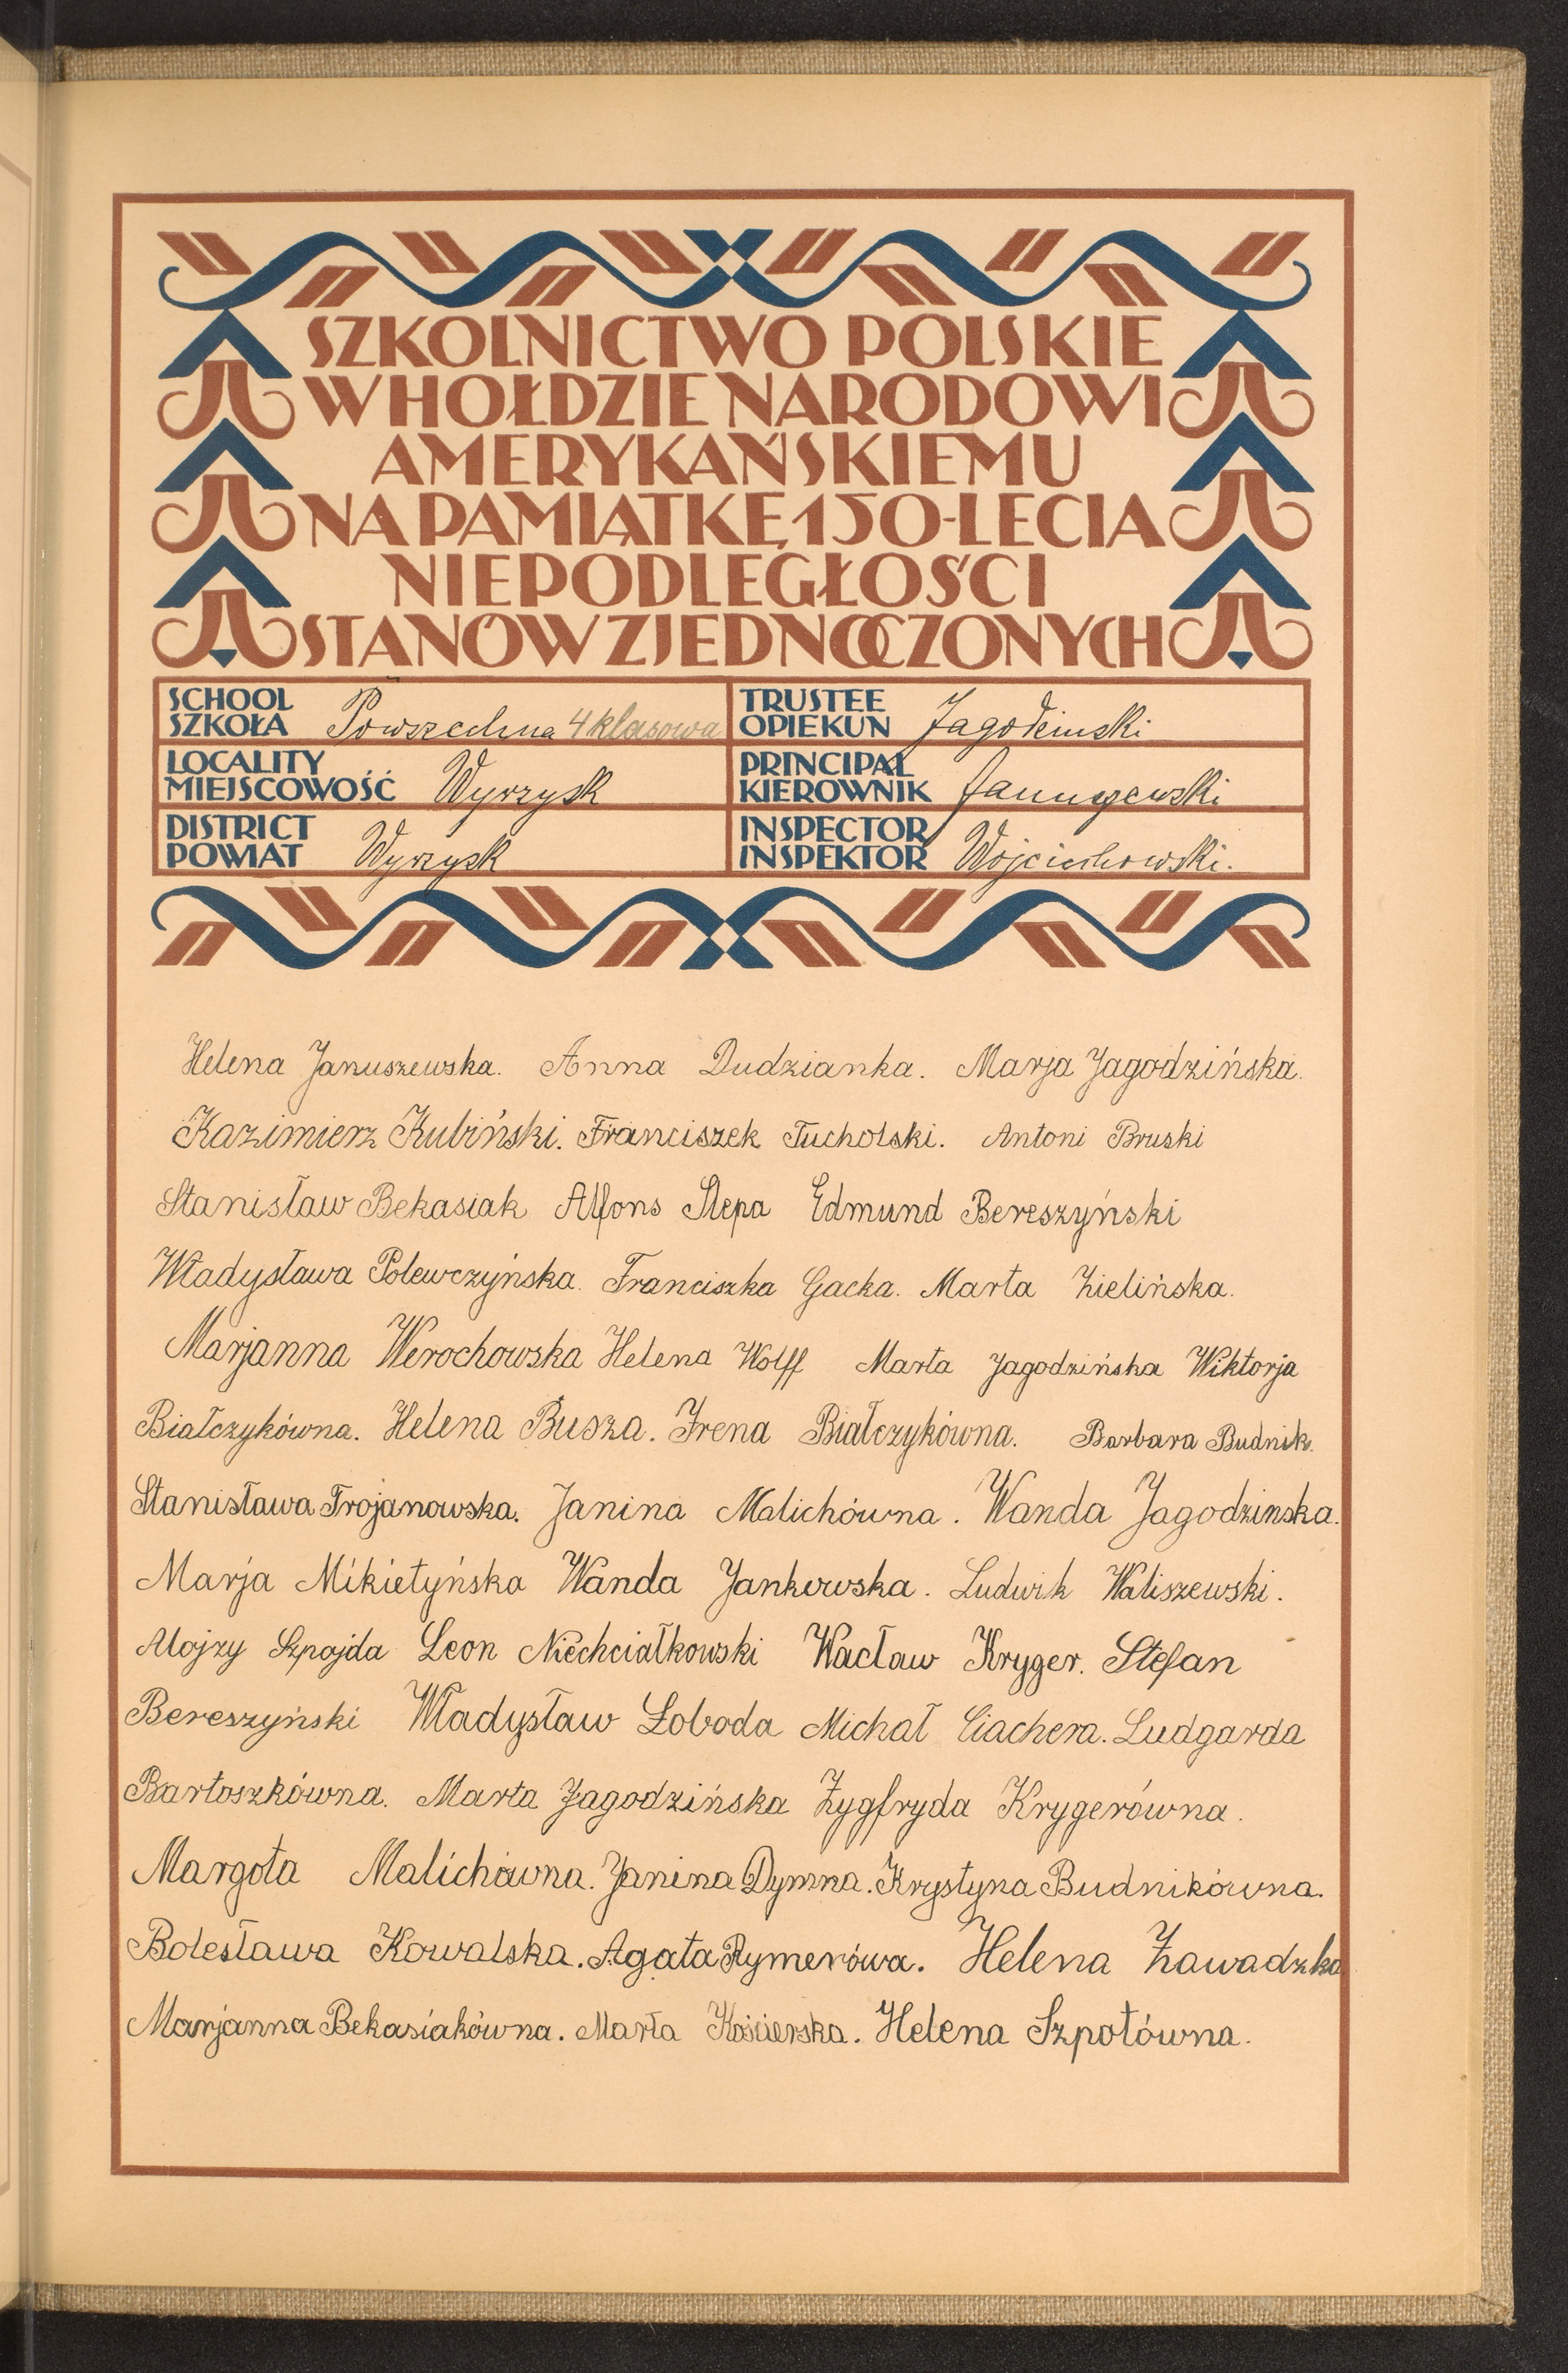 SZKOLNICTWO POLSKIE
W HOŁDZIE NARODOWI
AMERYKAŃSKIEMU
NA PAMIĄTKĘ 150-LECIA
NIEPODLEGŁOŚCI
STANÓW ZJEDNOCZONYCH
SCHOOL
SZKOŁA Powszechna 4 klasowa
TRUSTEE
OPIEKUN Jagodziński
LOCALITY
MIEJSCOWOŚĆ Wyrzysk
PRINCIPAL
KIEROWNIK Januszewski
DISTRICT
POWIAT Wyrzysk
INSPECTOR
INSPEKTOR Wojciechowski.
Helena Januszewska. Anna Dudzianka. Marja Jagodzińska.
Kazimierz Kubiński. Franciszek Tucholski. Antoni Bruski
Stanisław Bekasiak Alfons Slepa Edmund Bereszyński
Władysława Polewczyńska. Franciszka Gacka. Marta Zielińska.
Marjanna Werochowska Helena Wolff Marta Jagodzińska Wiktorja
Białczykówna. Helena Busza. Irena Białczykówna. Barbara Budnik.
Stanisława Trojanowska. Janina Malichówna. Wanda Jagodzinska.
Marja Mikietyńska Wanda Jankowska. Ludwik Waliszewski.
Alojzy Szpajda Leon Niechciałkowski Wacław Kryger. Stefan
Bereszyński Władysław Łoboda Michał Ciachera. Ludgarda
Bartoszkówna. Marta Jagodzińska Zygfryda Krygerówna.
Margota Malichówna. Janina Dymna. Krystyna Budnikówna.
Bolesława Kowalska. Agata Rymerówa. Helena Zawadzka
Marjanna Bekasiakówna. Marta Kościerska. Helena Szpotówna.